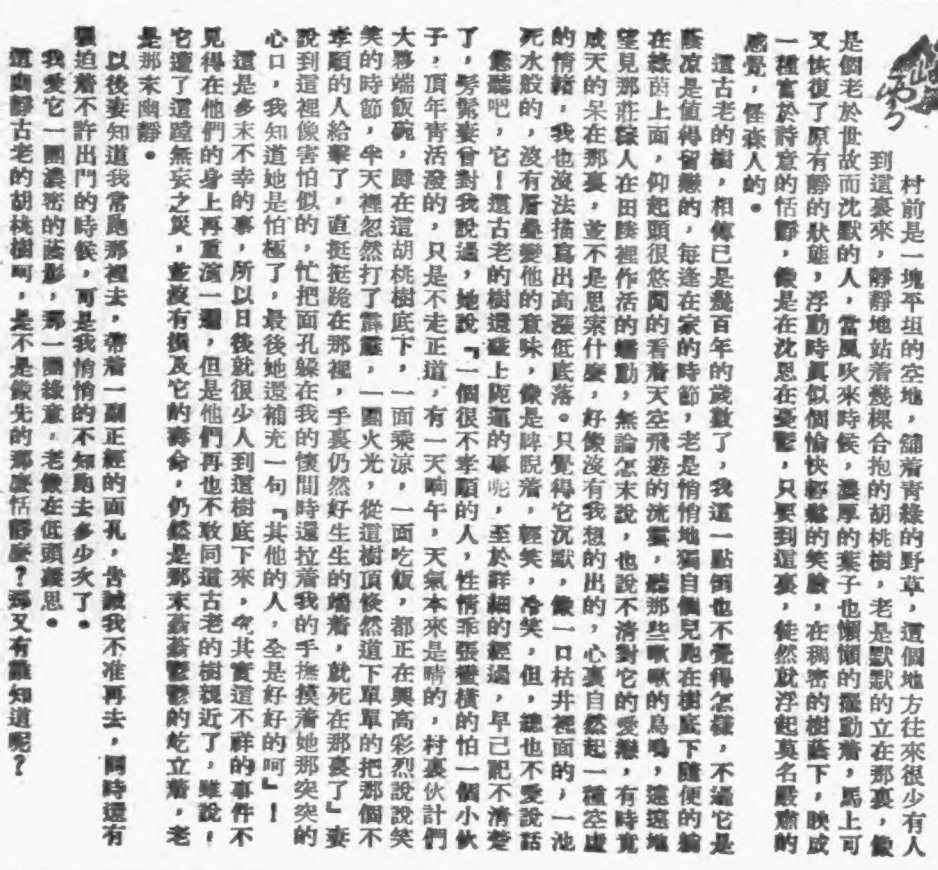 村前是一塊平坦的空地，舖着青綠的野草，這個地方往來很少有人
到這裏來，靜靜地站着幾棵合抱的胡桃樹，老是默默的立在那裏，像
是個老於世故而沈默的人，當風吹來時侯，濃厚的葉子也懶懶的擺動着，馬上可
又恢復了原有靜的狀態，浮動時眞似個愉快輕鬆的笑臉，在稠密的樹蔭下，映成
一種富於詩意的恬靜，像是在沈思在憂鬱，只要到這裏，徒然就浮起莫名嚴肅的
感覺，怪森人的。
這古老的樹，相傳已是幾百年的歲數了，我道一點倒也不覺得怎樣，不過它是
蔭凉是值得留戀的，每逢在家的時節，老是悄悄地獨自個兒跑在樹底下隨便的躺
在綠茵上面，仰起頭很悠閒的看着天空飛遊的流雲，聽那些啾啾的鳥鳴，遠遠地
望見那莊稼人在田陵裡作活的蠕動，無論怎末說，也說不清對它的愛戀，有時竟
成天的呆在那裏，並不是思索什麼，好像沒有我想的出的，心裏自然起一種空虛
的情緖，我也沒法描寫出高深低底落。只覺得它沉默，像一口枯井裡面的，一池
死水般的，沒有層疊變他的意味，像是睥睨着，輕笑，冷笑，但，總也不愛說話
您聽吧，它！這古老的樹還碰上厄運的事呢，至於詳細的經過，早已記不清楚
了，旁緊妻曾對我說過，她說『一個很不孝順的人，性情乖張蠻橫的怕一個小伙
子，頂年青活潑的，只是不走正道，有一天晌午，天氣本來是晴的，村裏伙計們
大夥端飯碗，蹲在這胡桃樹底下，一面乘涼，一面吃飯，都正在興高彩烈說說笑
笑的時節，半天裡忽然打了霹靂，一團火光，從這樹頂倏然道下單單的把那個不
孝順的人給擊了，直挺挺跪在那裡，手裏仍然好生生的端着，就死在那裏了』妻
說到這裡像害怕似的，忙把面孔躲在我的懷間時還拉着我的手撫摸着她那突突的
心口，我知道她是怕極了，最後她還補充一句『其他的人，全是好好的呵』！
這是多末不幸的事，所以日後就很少人到這樹底下來，究其實這不祥的事件不
見得在他們的身上再重演一遍，但是他們再也不敢同這古老的樹親近了，雖說！
它遭了這蹚無妄之災，並沒有損及它的壽命，仍然是那末蒼蒼鬱鬱的屹立着，老
是那末幽靜。
以後妻知道我常跑那裡去，帶着一副正經的面孔，告誡我不准再去，同時還有
強迫着不許出門的時候，可是我悄悄的不知跑去多少次了。
我愛它一團濃密的蔭影，那一團綠意，老像在低頭凝思。
這幽靜古老的胡桃樹呵，是不是像先的那麼恬靜麼？那又有誰知道呢？